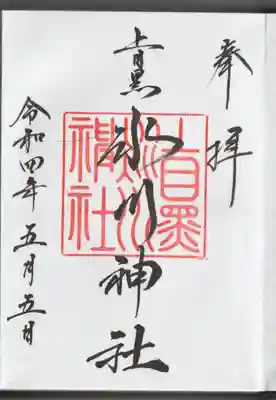 奉拝
上目黒
氷川神社
令和四年五月五日
上目黒氷川神社